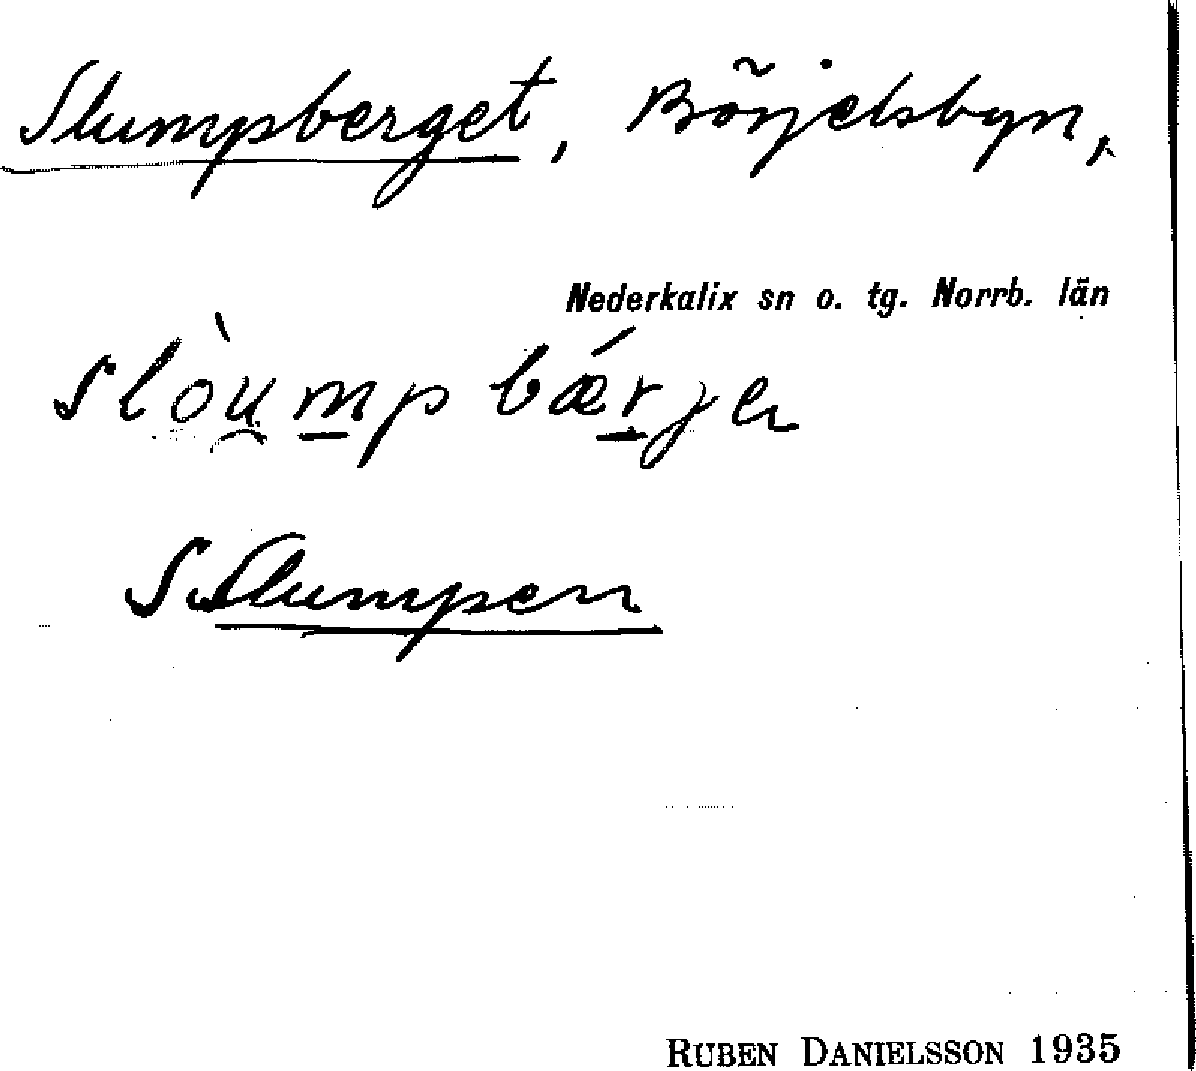 Slumpberget, Börjelsbyn,
Nederkalix sn o. tg. Norrb. län
slòu̯m̱pbǽṟjen
S. Slumpen
RUBEN DANIELSSON 1935